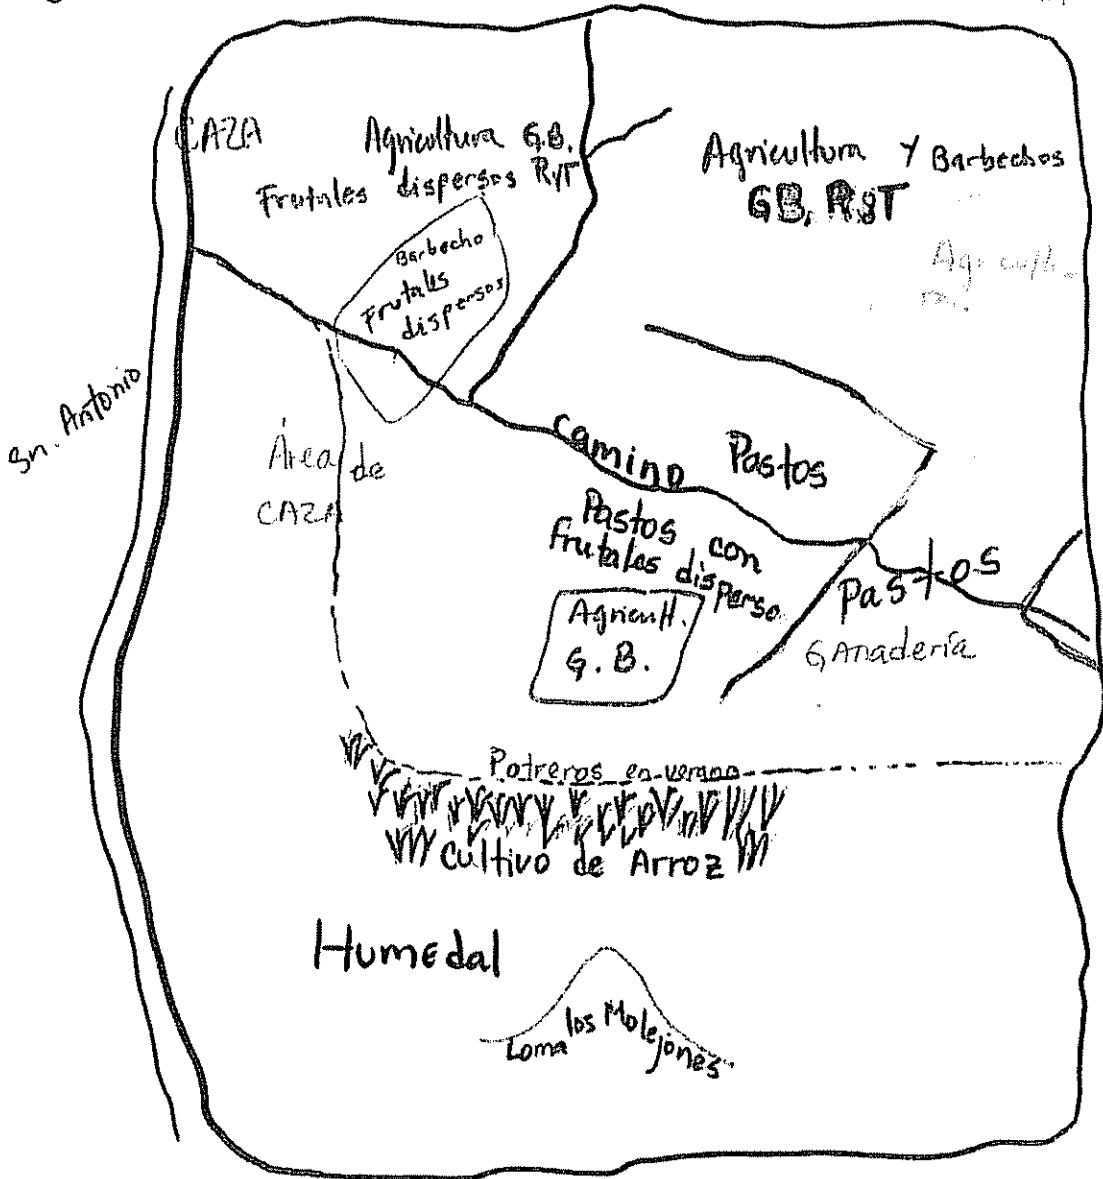 CAZA
Agricultura G.B.
Frutales dispersos RyT
Agricultura Y Barbechos
GB, RyT
Barbecho
Frutales
dispersos
Sn. Antonio
Área de
CAZA
camino
Pastos
Pastos con
frutales disperso
Agricult.
G. B.
Pastos
GAnadería
Potreros en verano
Cultivo de Arroz
Humedal
Loma los Molejones